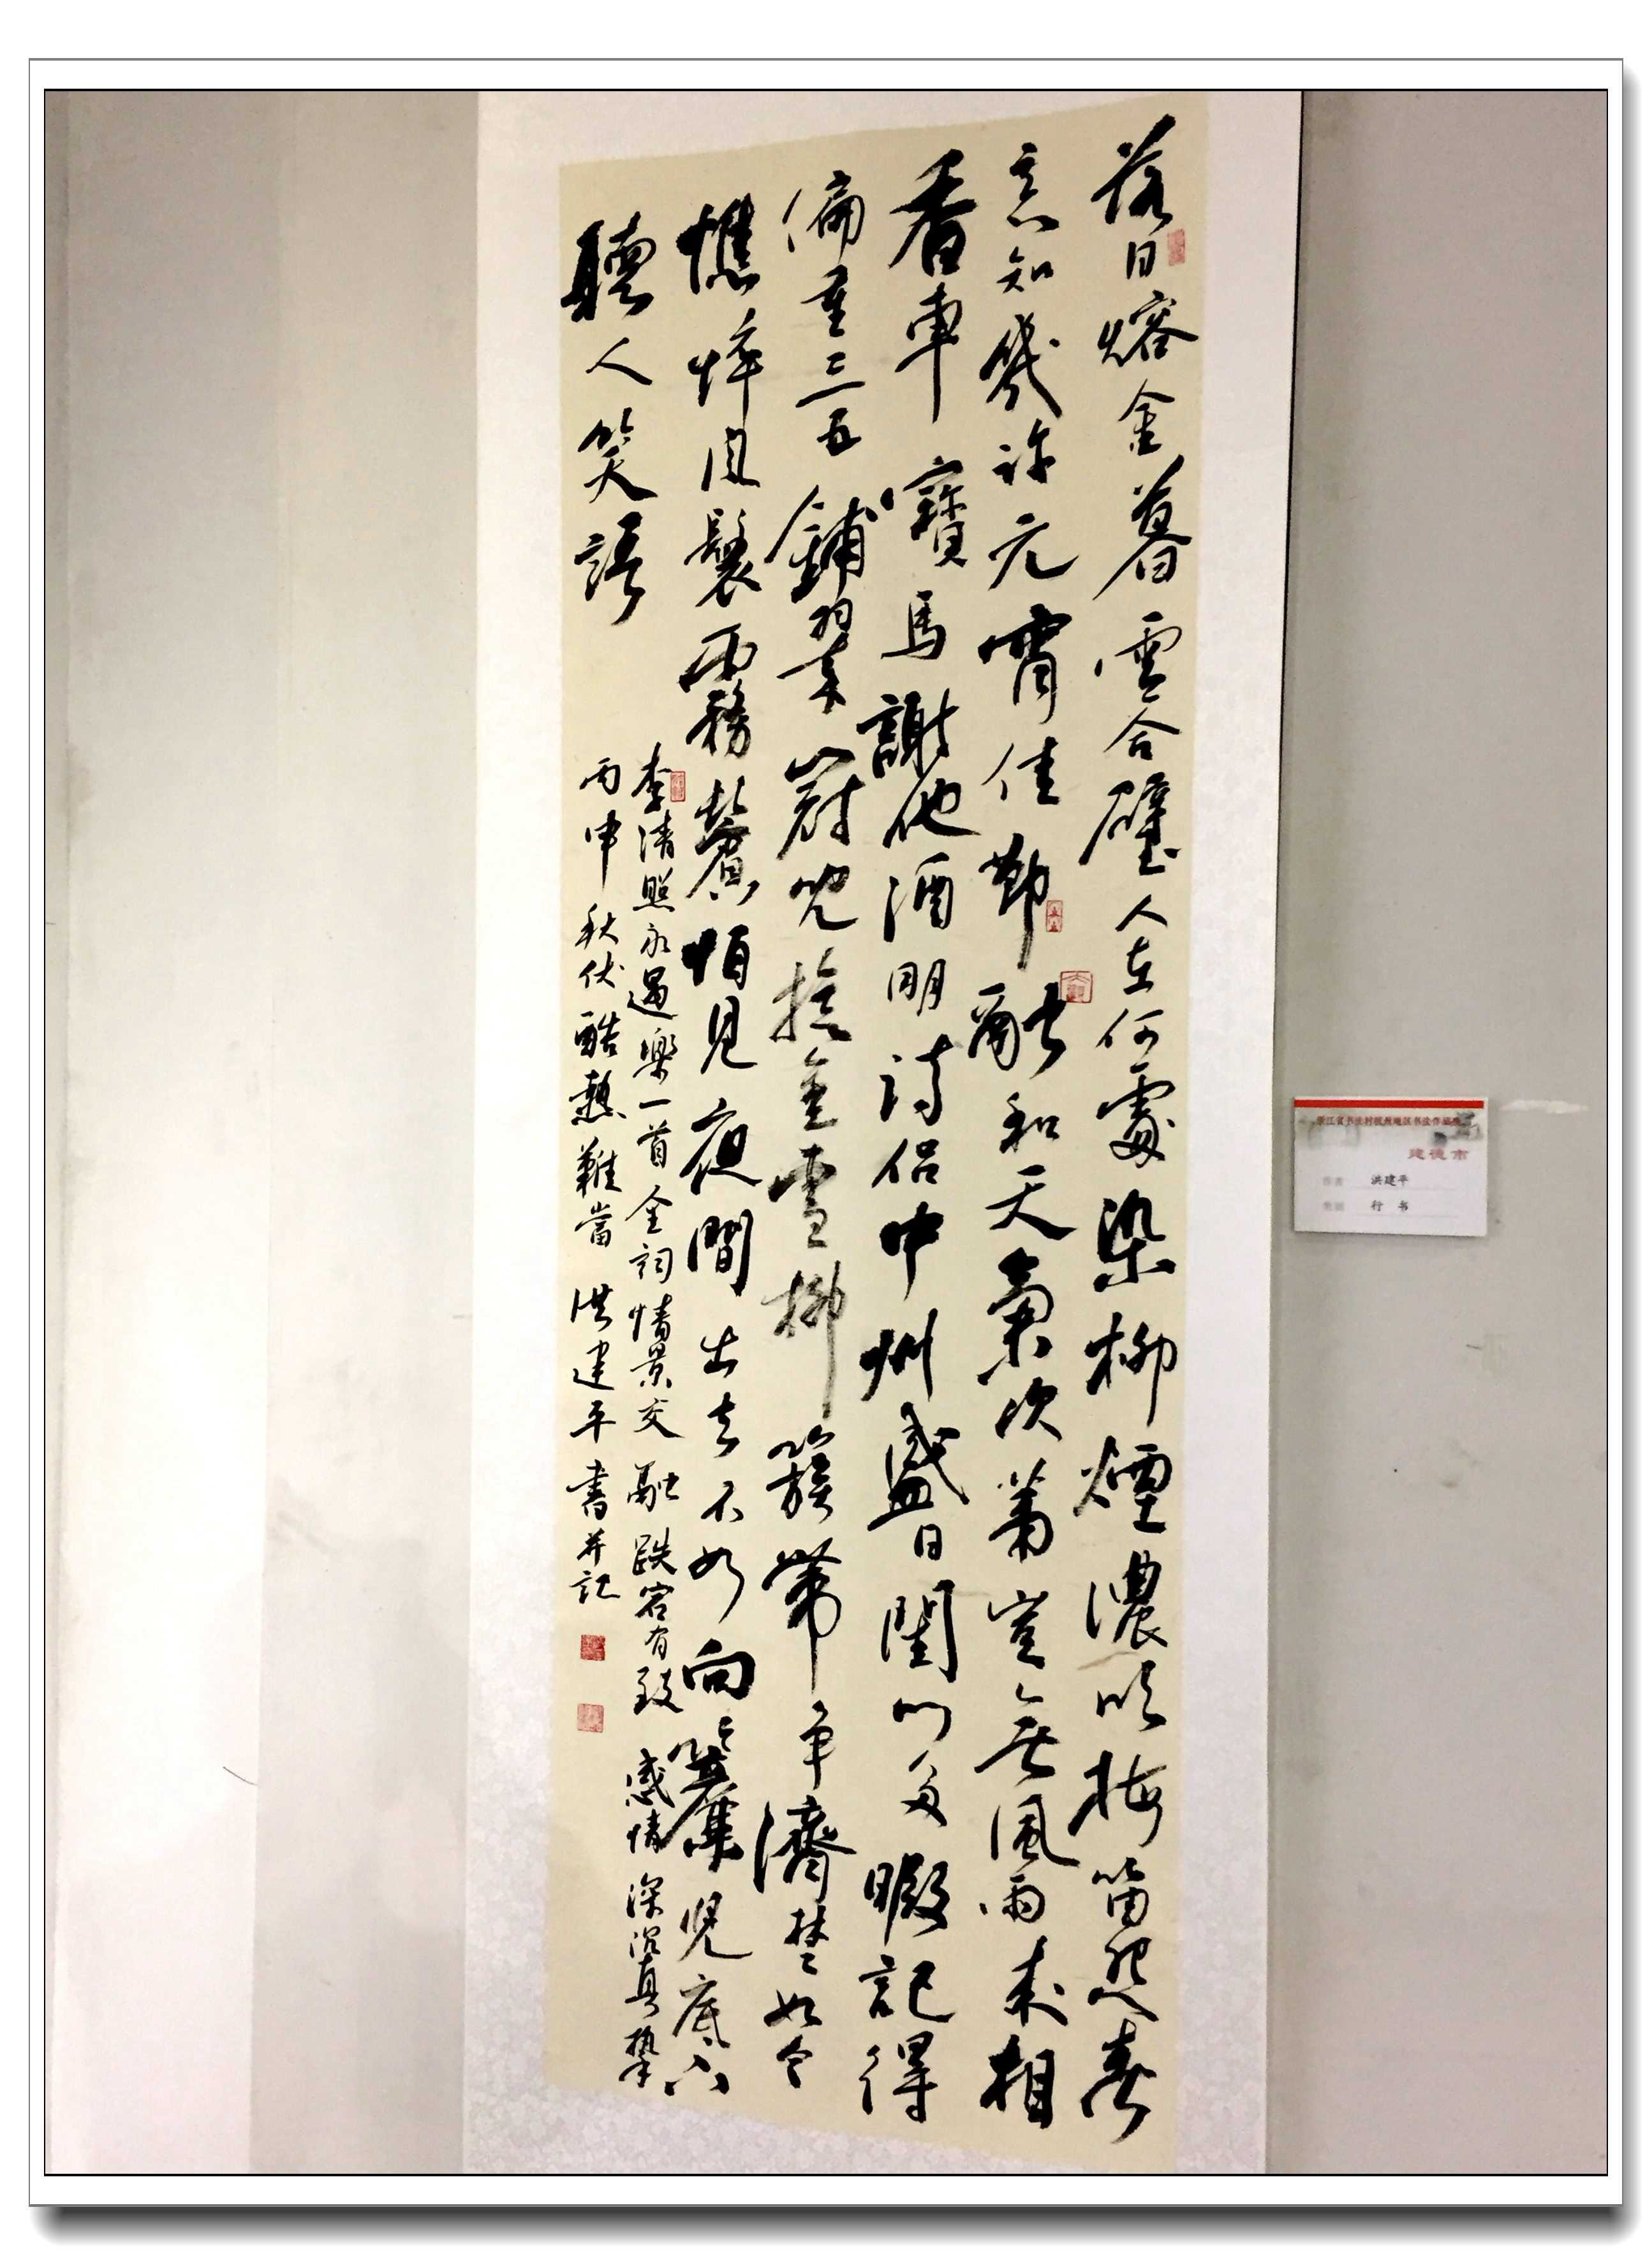 落日熔金暮雲合璧人在何處染柳煙濃吹梅笛怨春
意知幾許元宵佳節融和天氣次第豈無風雨來相
香車寶馬謝他酒朋詩侶中州盛日閨門多暇記得
偏重三五鋪翠冠兒撚金雪柳簇帶爭濟楚如今
憔悴風鬟霧鬢怕見夜間出去不如向簾兒底下
聽人笑語
李清照永遇樂一首全詞情景交融跌宕有致感情深沉真摯
丙申秋伏酷熱難當洪建平書并記
浙江省书法村杭州地区书法作品
建德市
洪建平
行书